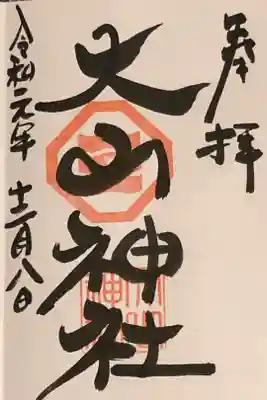 奉拝
大山神社
令和元年十二月八日